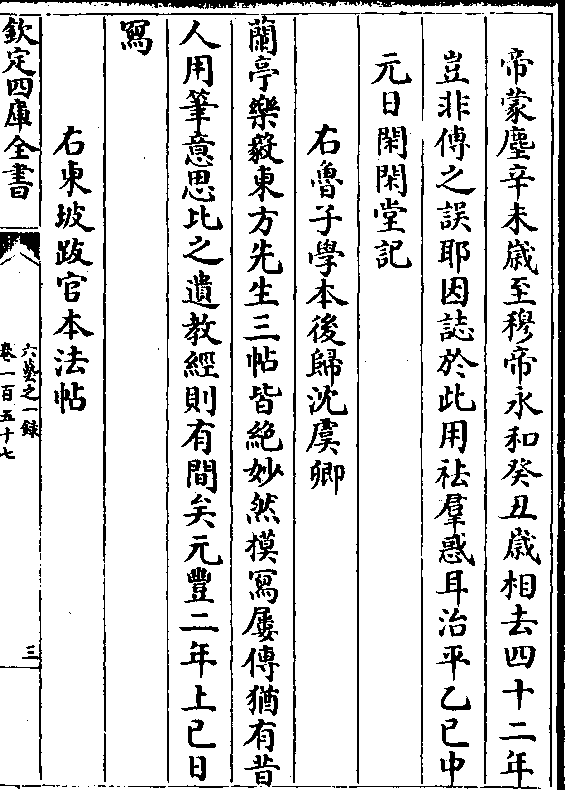 帝蒙塵辛未歲至穆帝永和癸丑歲相去四十二年
豈非傳之誤耶因誌於此用祛羣惑耳治平乙巳中
元日閑閑堂記
右魯子學本後歸沈虞卿
蘭亭樂毅東方先生三帖皆絶妙然摸寫屢傳猶有昔
人用筆意思比之遺教經則有間矣元豐二年上巳日
寫
右東坡跋官本法帖
欽定四庫全書
六藝之一録
卷一百五十七
三